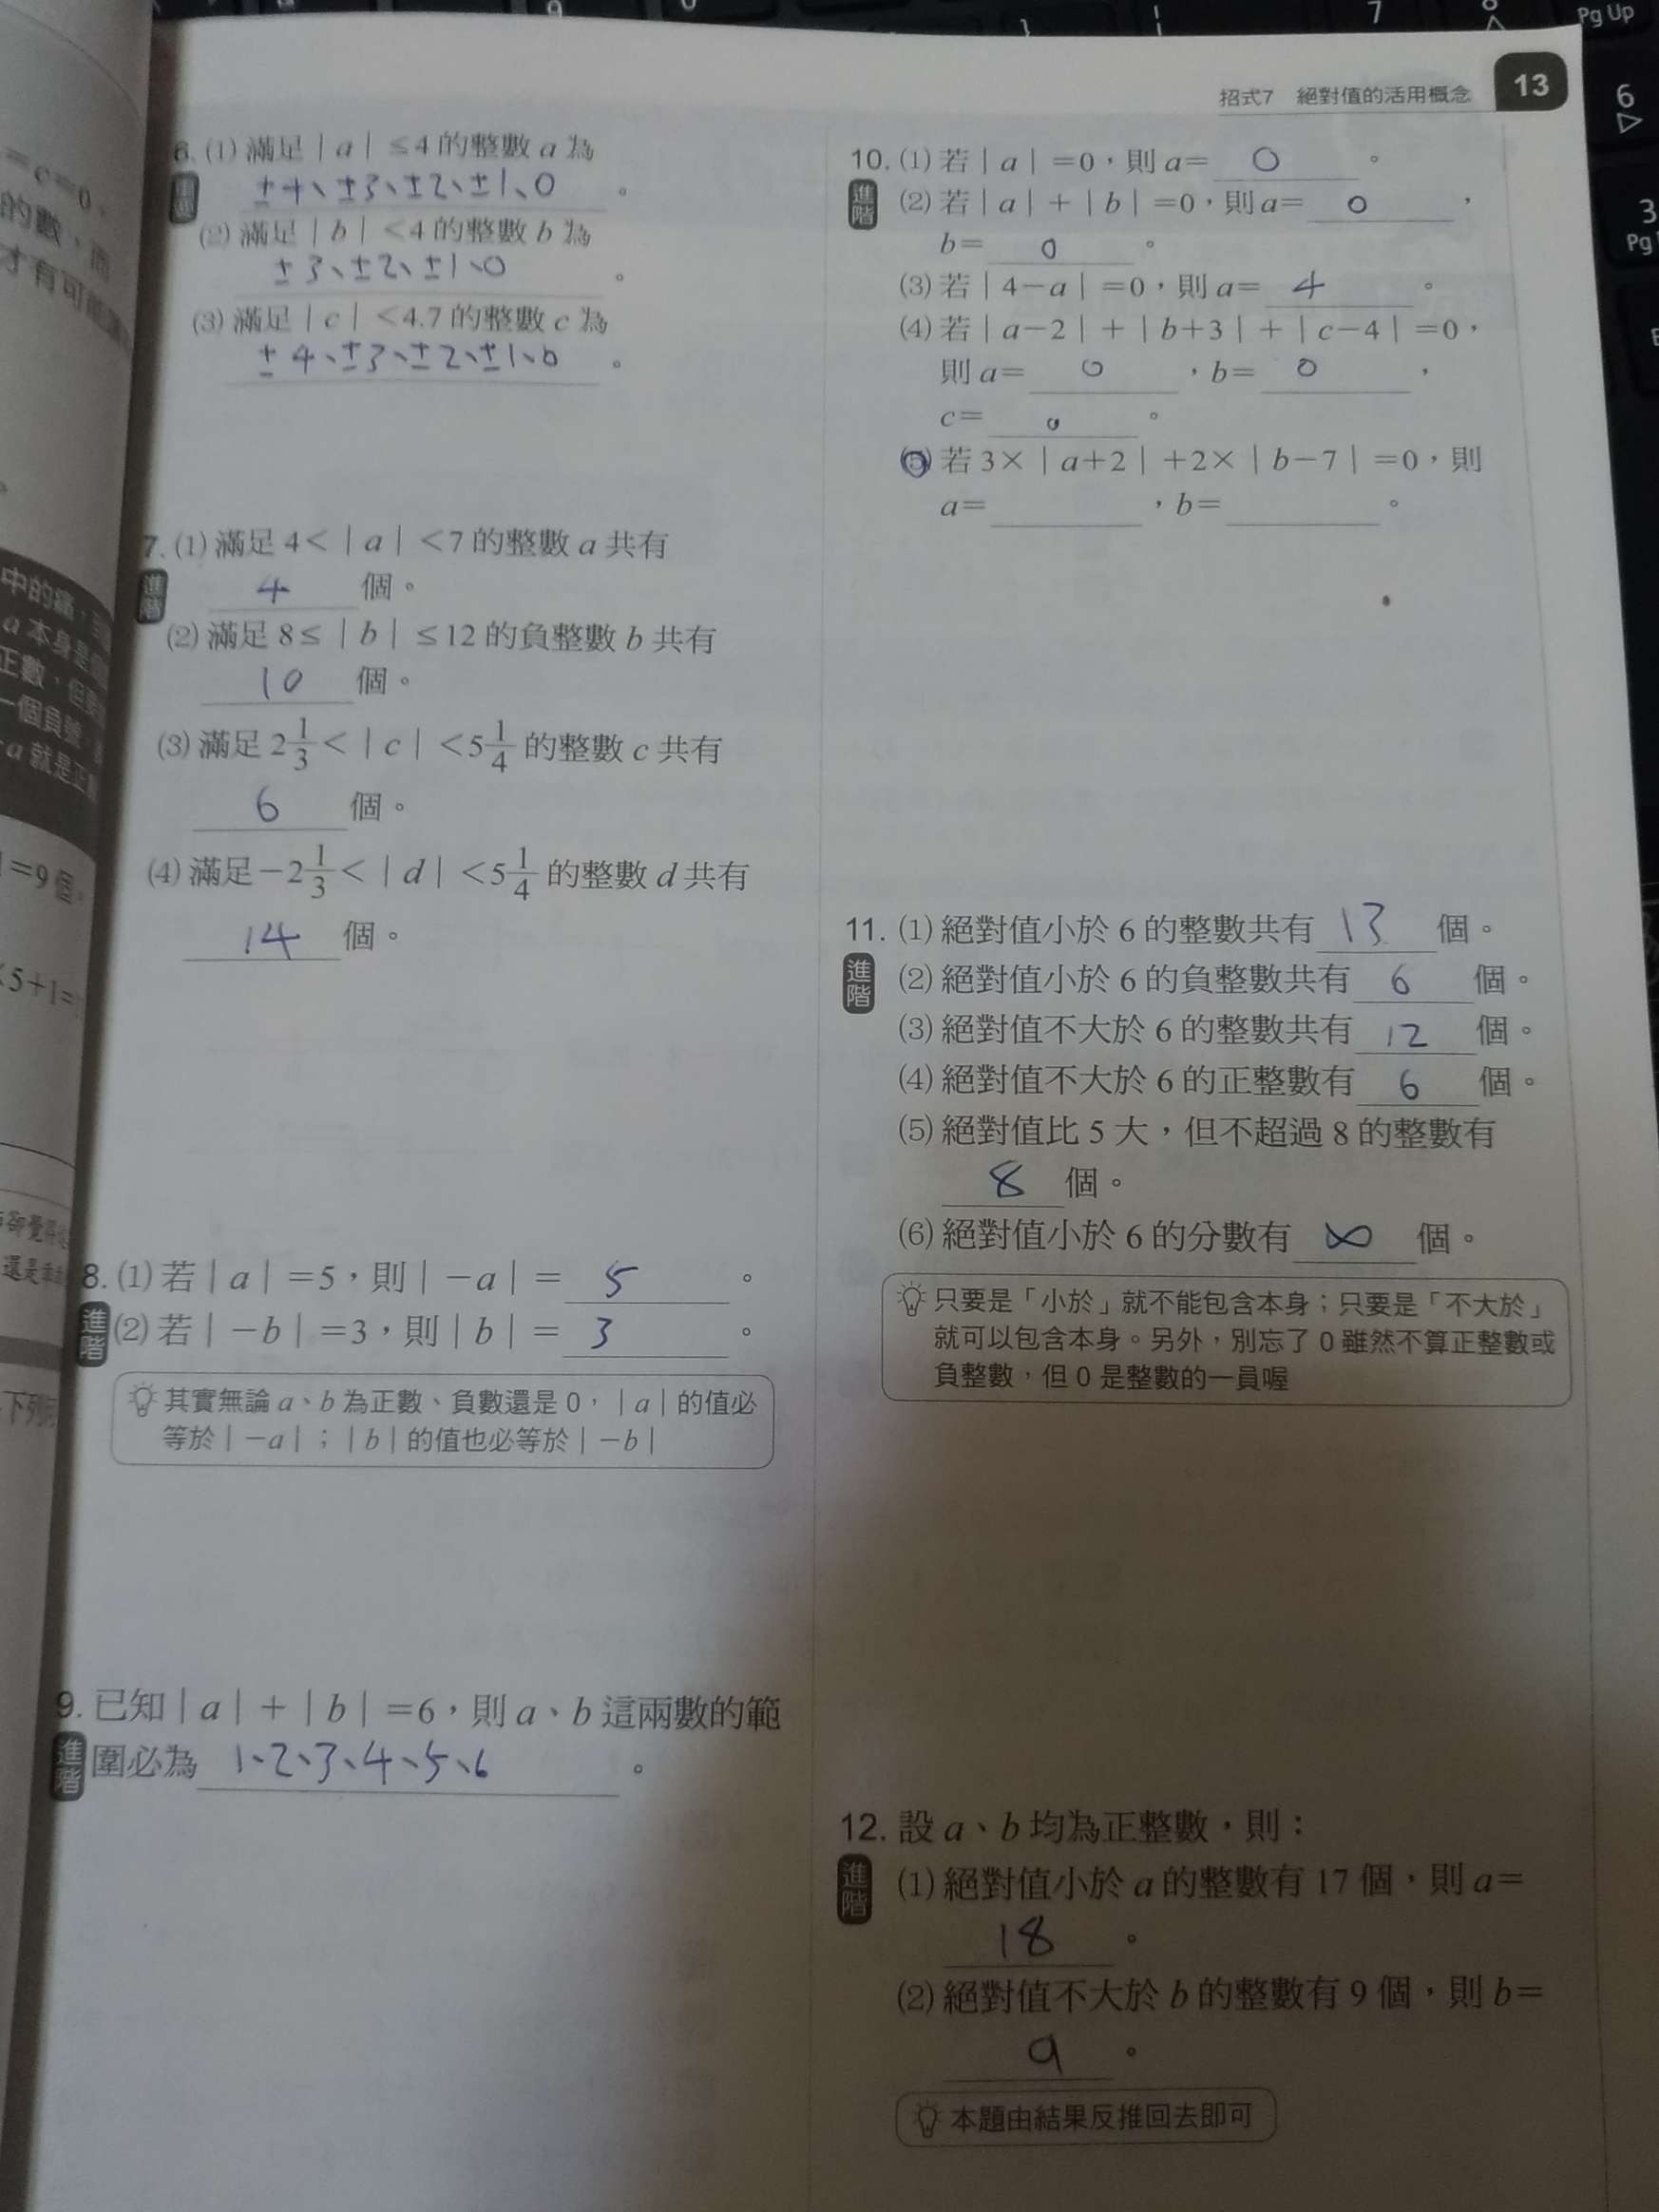 招式7 絕對值的活用概念 13
6. (1) 滿足|a|≤4的整數a為
±4、±3、±2、±1、0。
(2) 滿足|b|<4的整數b為
±3、±2、±1、0。
(3) 滿足|c|<4.7的整數c為
±4、±3、±2、±1、0。
7. (1) 滿足4<|a|<7的整數a共有
進階
4個。
(2) 滿足8≤|b|≤12的負整數b共有
10個。
(3) 滿足2 1/3<|c|<5 1/4的整數c共有
6個。
(4) 滿足-2 1/3<|d|<5 1/4的整數d共有
14個。
8. (1) 若|a|=5,則|-a|=5。
進階
(2) 若|-b|=3,則|b|=3。
其實無論a、b為正數、負數還是0,|a|的值必
等於|-a|;|b|的值也必等於|-b|
9. 已知|a|+|b|=6,則a、b這兩數的範
進階
圍必為1、2、3、4、5、6。
10. (1) 若|a|=0,則a=0。
進階
(2) 若|a|+|b|=0,則a=0,
b=0。
(3) 若|4-a|=0,則a=4。
(4) 若|a-2|+|b+3|+|c-4|=0,
則a=0,b=0,
c=0。
(5) 若3×|a+2|+2×|b-7|=0,則
a=,b=。
11. (1) 絕對值小於6的整數共有13個。
進階
(2) 絕對值小於6的負整數共有6個。
(3) 絕對值不大於6的整數共有12個。
(4) 絕對值不大於6的正整數有6個。
(5) 絕對值比5大,但不超過8的整數有
8個。
(6) 絕對值小於6的分數有∞個。
只要是「小於」就不能包含本身;只要是「不大於」
就可以包含本身。另外,別忘了0雖然不算正整數或
負整數,但0是整數的一員喔
12. 設a、b均為正整數,則:
進階
(1) 絕對值小於a的整數有17個,則a=
18。
(2) 絕對值不大於b的整數有9個,則b=
9。
本題由結果反推回去即可
=c=0。
的數,而
才有可能
中的痛,
a本身是
正數,但
一個負號,
-a就是正
=9個。
×5+1=
還是
下列
Pg Up
7
6
3
Pg
9
0